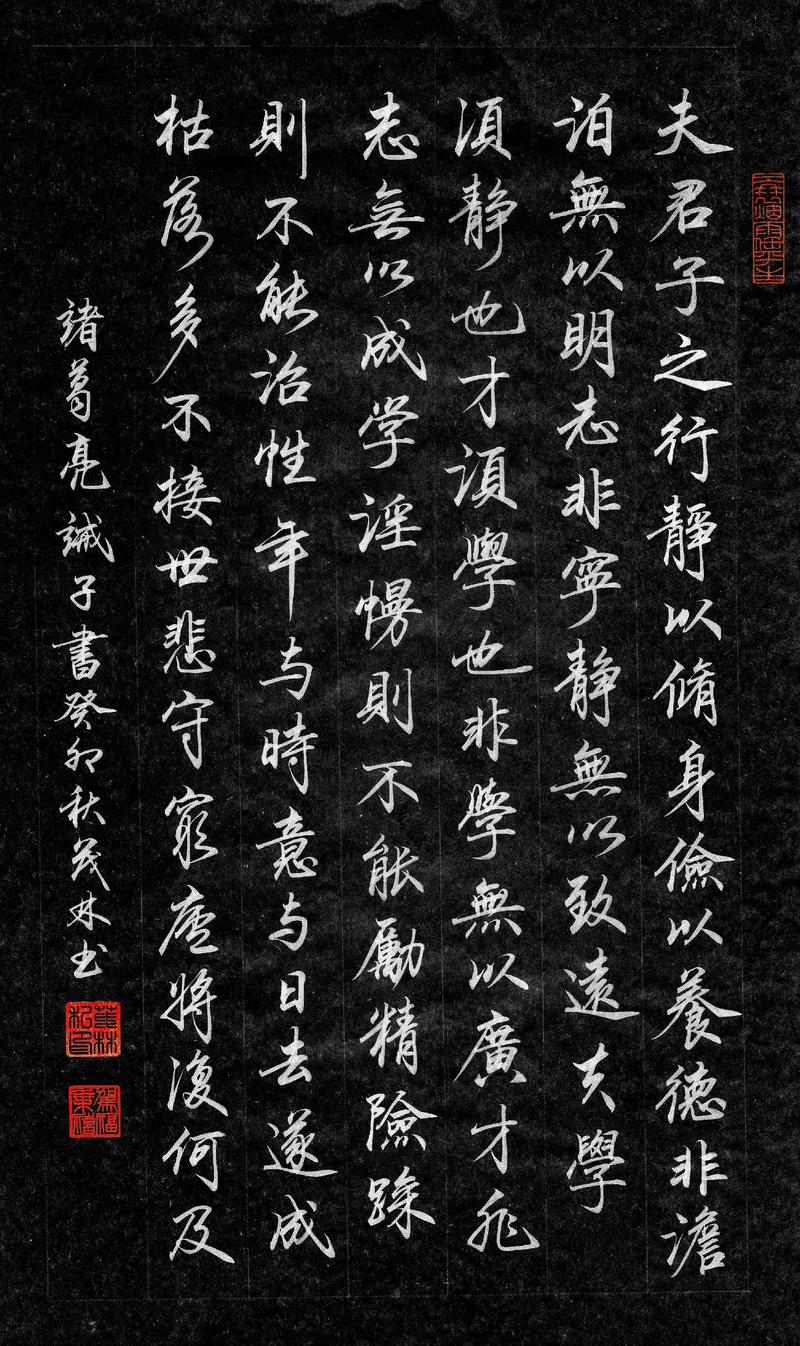 夫君子之行靜以脩身儉以養德非澹
泊無以明志非寧静無以致遠夫學
須静也才須學也非學無以廣才非
志無以成学淫慢則不能勵精險躁
則不能治性年与時意与日去遂成
枯落多不接世悲守窮廬將復何及
諸葛亮誡子書癸卯秋茂林书